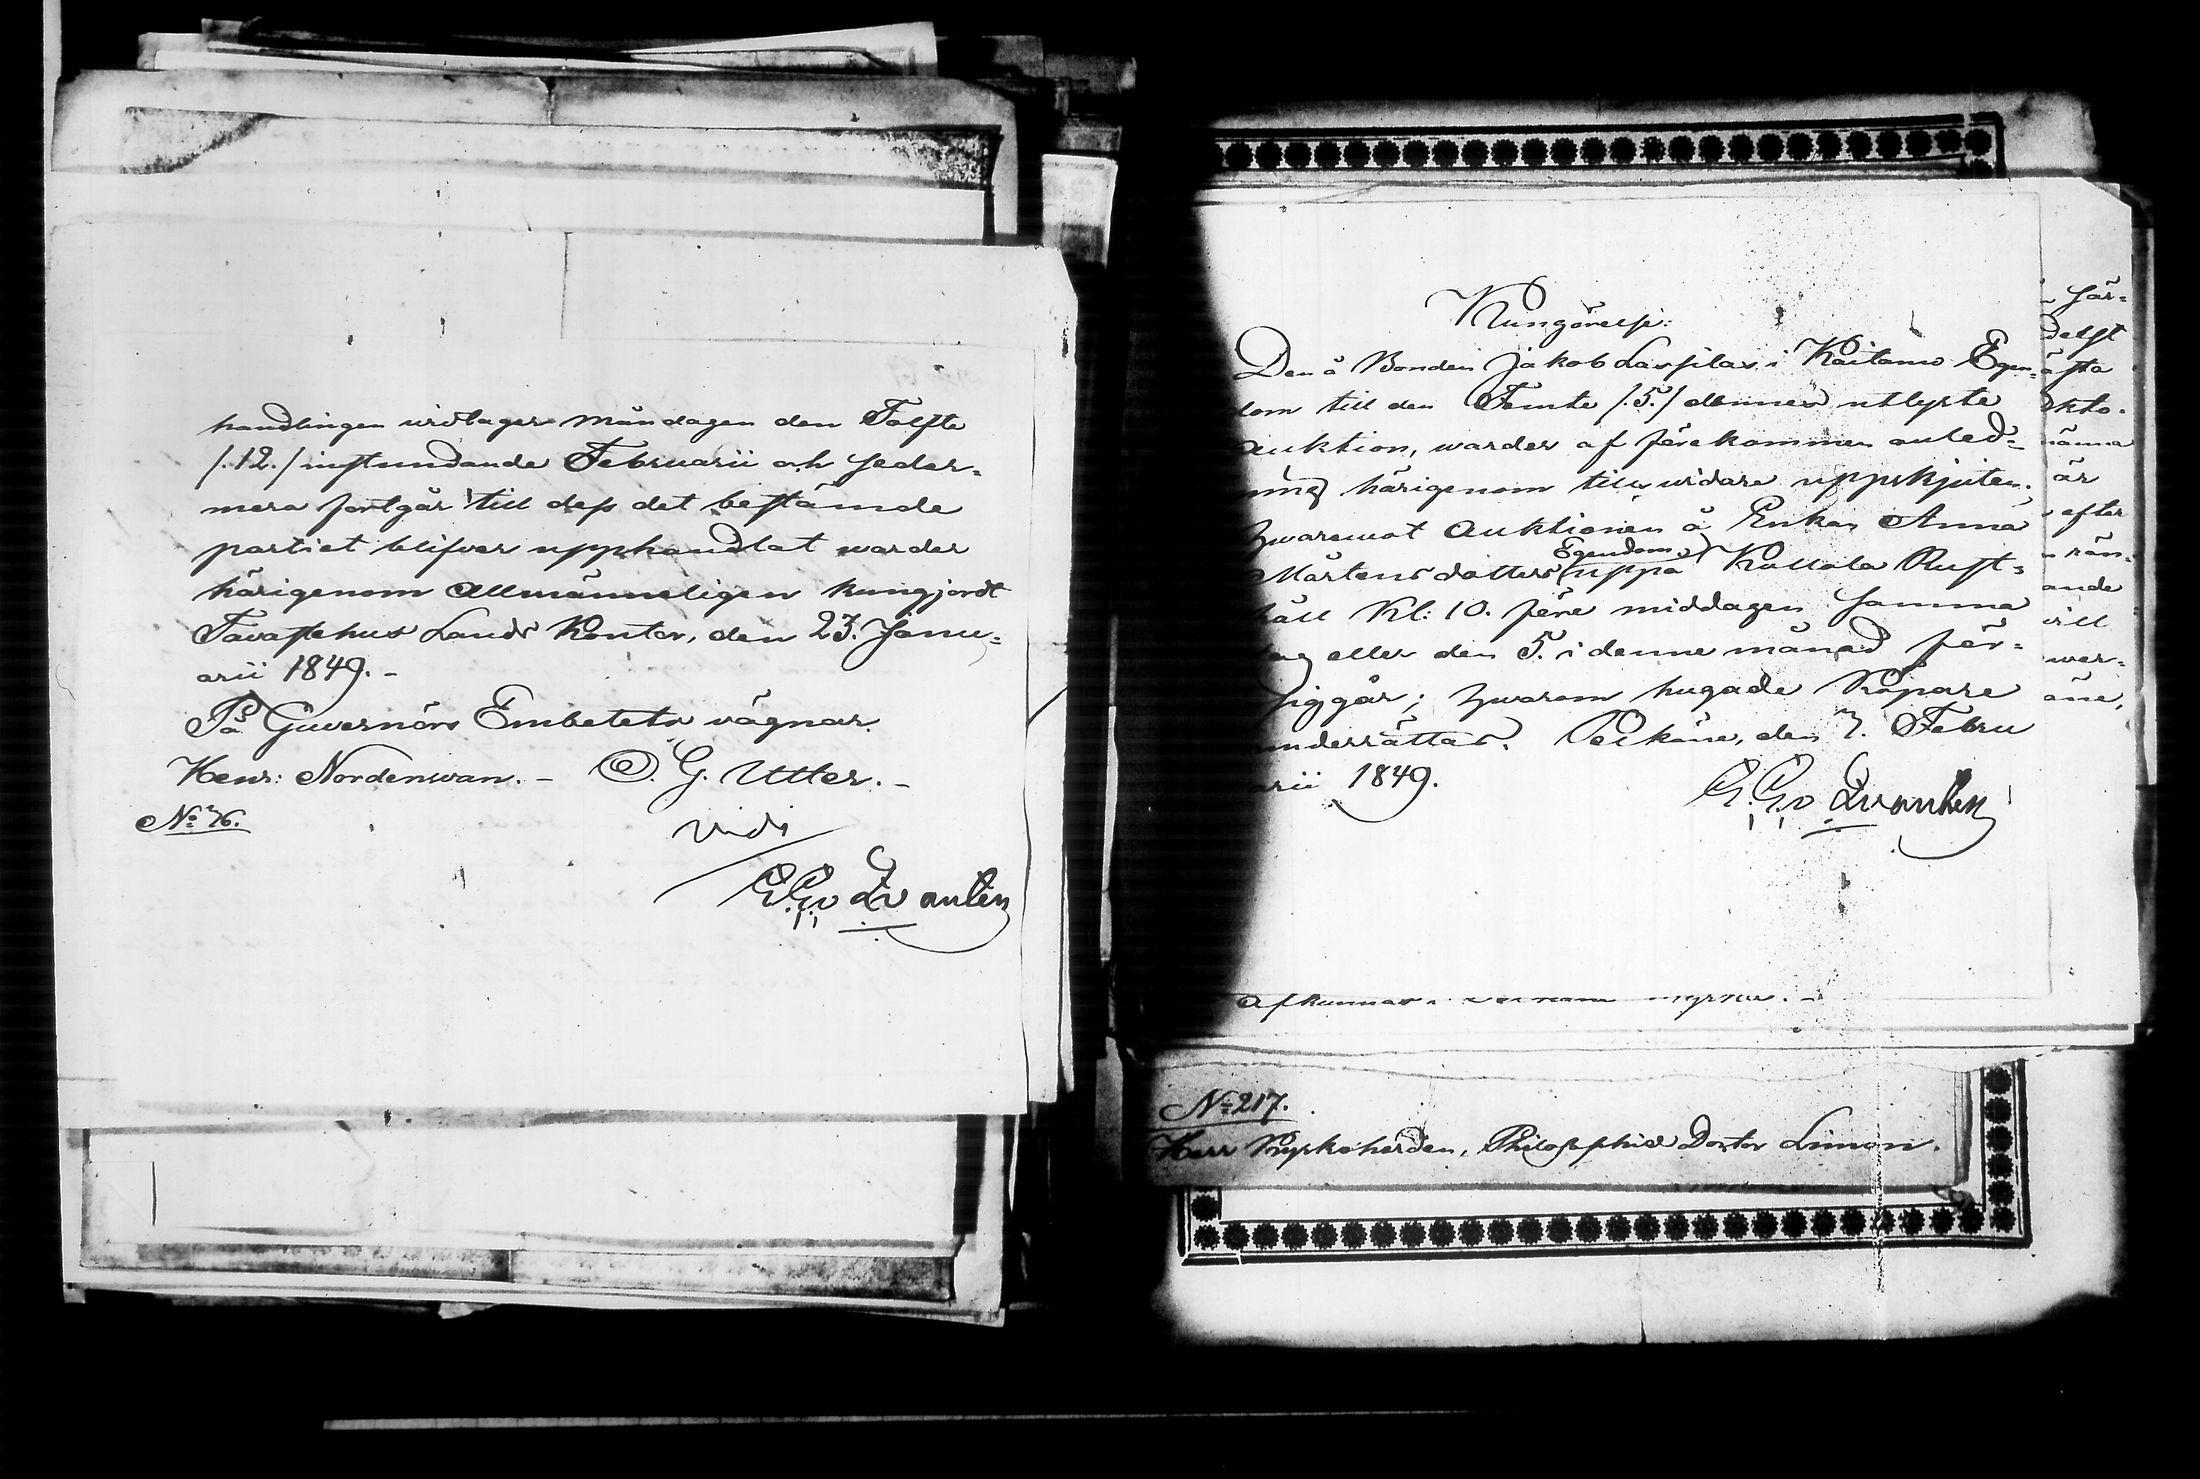 handlingen vidtager måndagen den Tolfte
/.12./ instundande Februarii och seder-
mera fortgår till dess det bestämde
partiet blifver upphandlat warder
härigenom allmänneligen kungjordt
Tavastehus Lands Kontor, den 23. Janu-
arii 1849. -
På Guvernörs Embetets vägnar.
Henr: Nordenswan. - O. G. Utter. -
No 76.
vidi
G. G. v Qvanten
Kungörelse:
Den å Bonden Jakob Larsilas i Kaitamo Egen-
dom till den Femte /.5./ dennes utlyste
auktion, warder af förekommen anled-
ning härigenom till widare uppskjuten.
Hwaremot auktionen å Enkan Anna
Mårtensdotters Egendom uppå Kollola Rust-
håll Kl: 10. före middagen samma
dag eller den 5. i denne månad för-
siggår; hwarom hugade Köpare
underrättas. Pelkäne, den 3. Febru
arii 1849.
G. G. v Qvanten
afkunnas i
No 217.
Herr Kyrkoherden, Philosophie Doctor Limon.
när-
delst
åsta
okto-
nämna
är
efter
rän-
ande
vill
wer-
äne,